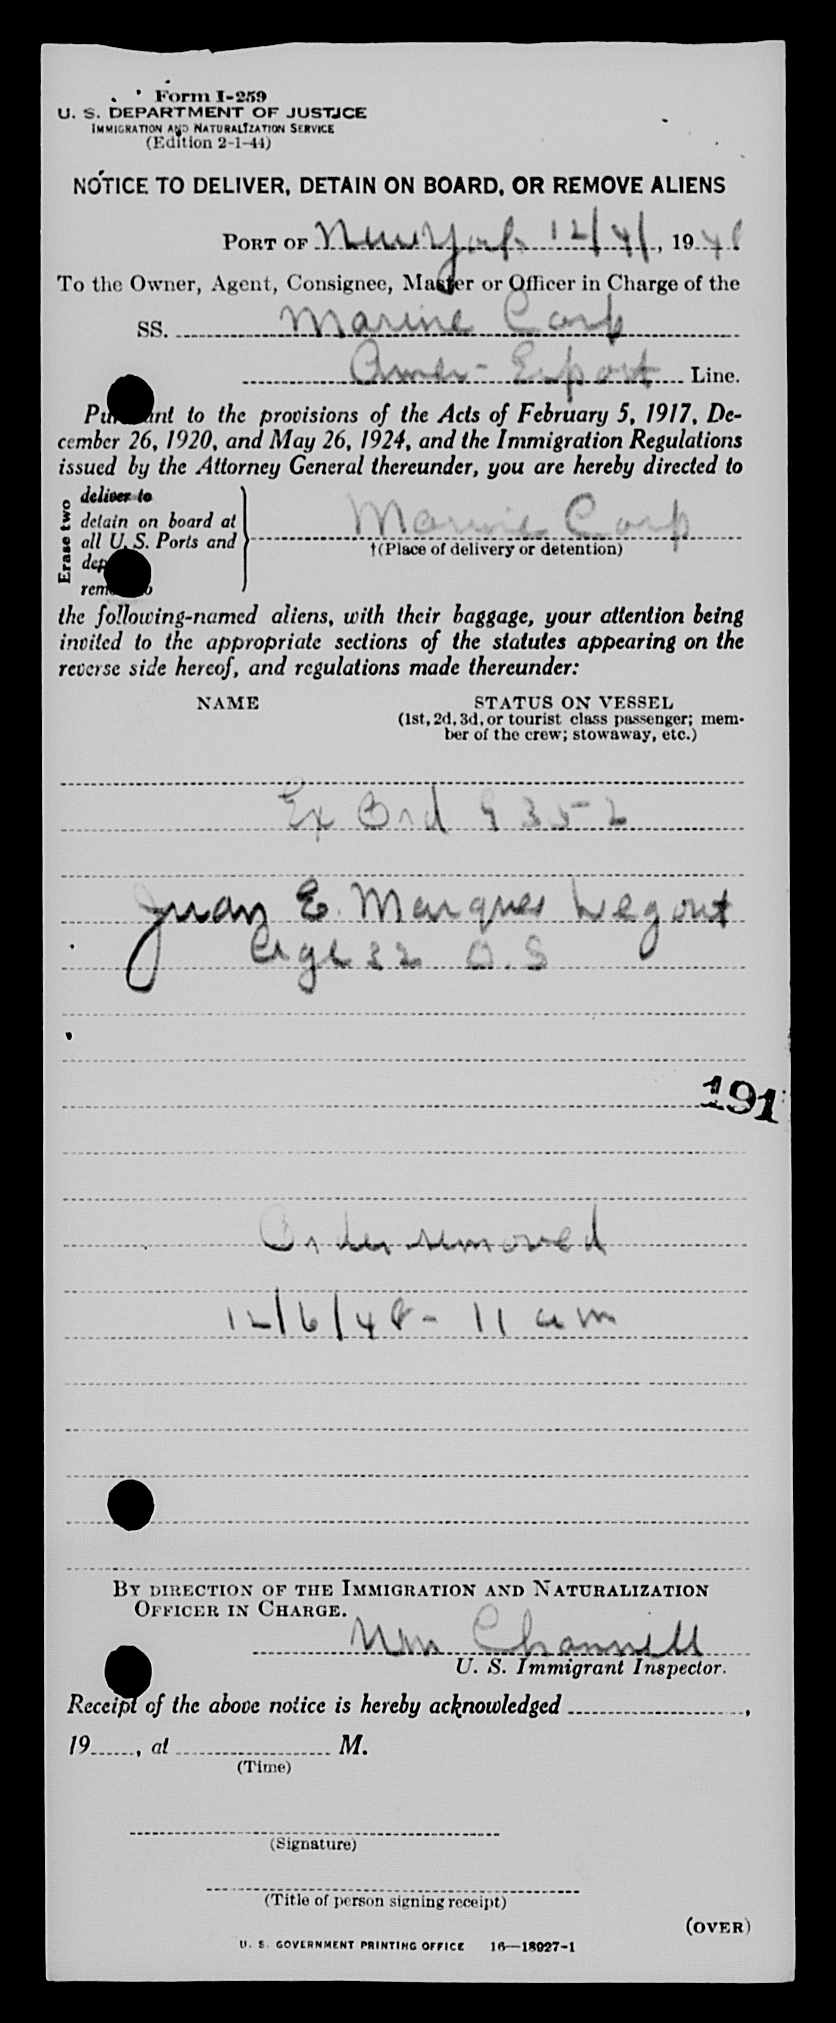 Form I-259
U. S. DEPARTMENT OF JUSTICE
IMMIGRATION AND NATURALIZATION SERVICE
(Edition 2-1-44)
NOTICE TO DELIVER, DETAIN ON BOARD, OR REMOVE ALIENS
PORT OF New York 12/4/, 1948
To the Owner, Agent, Consignee, Master or Officer in Charge of the
SS. Marine Carp
Amer- Export Line.
Pursuant to the provisions of the Acts of February 5, 1917, De-
cember 26, 1920, and May 26, 1924, and the Immigration Regulations
issued by the Attorney General thereunder, you are hereby directed to
Erase two
deliver to
detain on board at
all U. S. Ports and
Marine Carp
†(Place of delivery or detention)
the following-named aliens, with their baggage, your attention being
invited to the appropriate sections of the statutes appearing on the
reverse side hereof, and regulations made thereunder:
NAME STATUS ON VESSEL
(1st, 2d, 3d, or tourist class passenger; mem-
ber of the crew; stowaway, etc.)
Ex Ord 9352
Juan E. Marques
Age 32 O.S
191
Order removed
12/6/48- 11 am
BY DIRECTION OF THE IMMIGRATION AND NATURALIZATION
OFFICER IN CHARGE.
Wm Channell
U. S. Immigrant Inspector.
Receipt of the above notice is hereby acknowledged ,
19 , at M.
(Time)
(Signature)
(Title of person signing receipt)
(OVER)
U. S. GOVERNMENT PRINTING OFFICE 16—18927-1